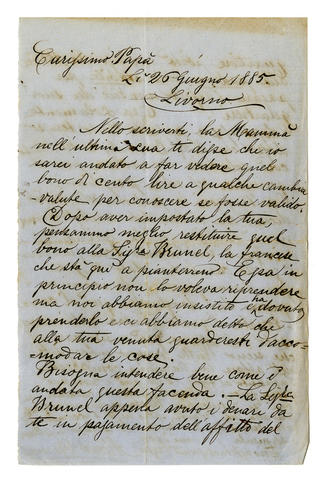 Carissimo Papà
Lì 26 Giugno 1885
Livorno
Nello scriverti, la Mamma
nell'ultima sua ti disse che io
sarei andato a far vedere quel
bono di cento lire a qualche cambia
valute, per conoscere se fosse valido.
Dopo aver impostato la tua,
pensammo meglio restituire quel
bono alla Sigra Brunel, la francese
che sta quì a pianterreno. Essa in
principio non lo voleva riprendere
ma noi abbiamo insistito ha dovuto
prenderlo e ci abbiamo detto che
alla tua venuta guarderesti d'acco=
=modar le cose.
Bisogna intendere bene come è
andata questa facenda. - La Sigra
Brunel appena avuto i denari da
te in pagamento dell'affitto del